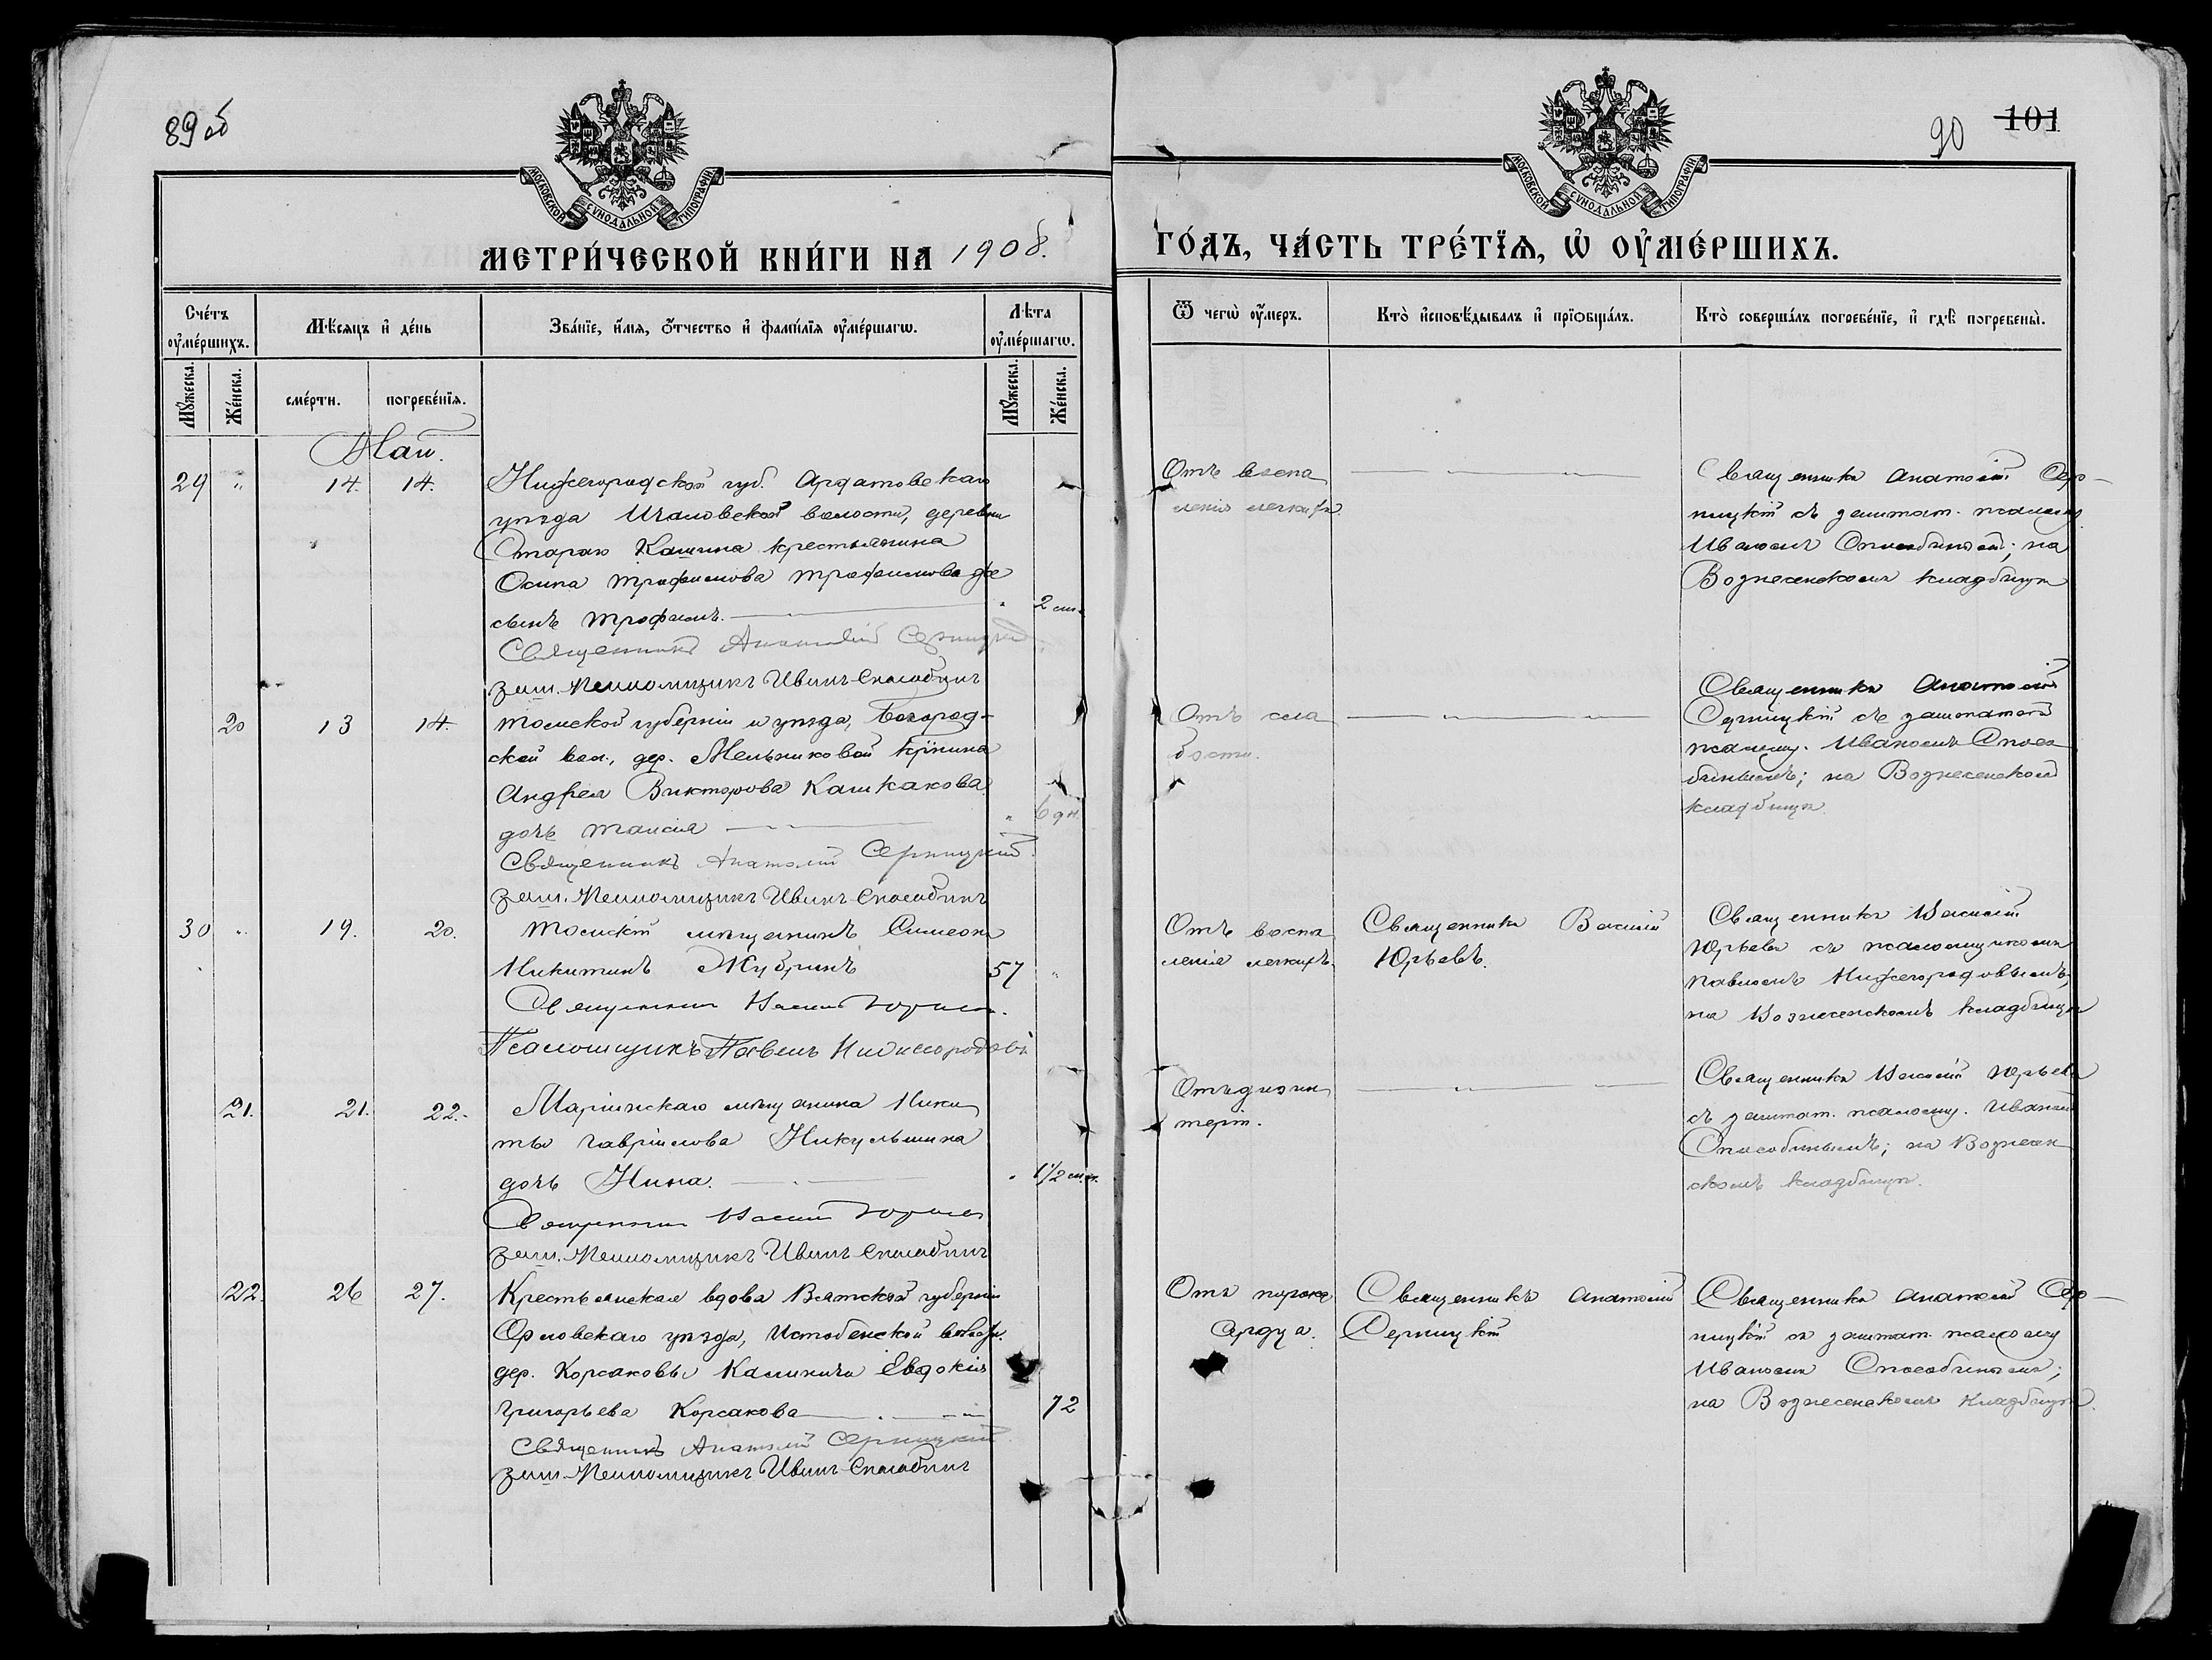 89 об
90
101
МОСКОВСКОЙ СѴНОДАЛЬНОЙ ТИПОГРАФІИ
МОСКОВСКОЙ СѴНОДАЛЬНОЙ ТИПОГРАФІИ
МЕТРИ́ЧЕСКОЙ КНИ́ГИ НА 1908.
ГО́ДЪ, ЧА́СТЬ ТРЕ́ТЇѦ, Ѡ҆ ОУ҆МЕ́РШИХЪ.
Сче́тъ оу҆ме́ршихъ.
Мѣ́сяцъ и҆ де́нь
Зва́нїе, и҆́мѧ, ѻ҆́тчество и҆ фами́лїѧ оу҆ме́ршагѡ.
Лѣ́та оу҆ме́ршагѡ.
Ѿ чегѡ̀ оу҆́меръ.
Кто̀ и҆сповѣ́дывалъ и҆ прїѡбща́лъ.
Кто̀ соверша́лъ погребе́нїе, и҆ гдѣ̀ погребены̀.
Мꙋ́жеска. Же́нска.
сме́рти.
погребе́нїѧ.
Мꙋ́жеска. Же́нска.
Май.
29 " 14. 14.
Нижегородской губ. Ардатовскаго
уѣзда Ичаловской волости, деревни
Стараго Кашина крестьянина
Осипа Трофимова Трофимова же
сынъ Трофимъ. " 2 м.
Священникъ Анатолій Серницкій
заш. Псаломщикъ Иванъ Способинъ
Отъ воспа
ленія легкихъ.
Священникъ Анатолій Сер-
ницкій съ заштат. псаломщ.
Иваномъ Способинымъ; на
Вознесенскомъ кладбищѣ
20 13 14.
Томской губерніи и уѣзда, Богород-
ской вол., дер. Мельниковой кр-нина
Андрея Викторова Кашкакова
дочь Таисія " 6 дн.
Священникъ Анатолій Серницкій.
заш. Псаломщикъ Иванъ Способинъ
Отъ сла
бости.
Священникъ Анатолій
Серницкій съ заштатн.
псаломщ. Иваномъ Спосо
бинымъ; на Вознесенском
кладбищѣ.
30 " 19. 20.
Томскій мѣщанинъ Симеонъ
Никитинъ Жубринъ 57 "
Священникъ Василій Юрьевъ.
Псаломщикъ Павелъ Нижегородовъ
Отъ воспа
ленія легкихъ.
Священникъ Василій
Юрьевъ.
Священникъ Василій
Юрьевъ съ псаломщикомъ
Павломъ Нижегородовымъ,
на Вознесенскомъ кладбищѣ
21. 21. 22.
Маріинскаго мѣщанина Ники
ты Гавріилова Никульшина
дочь Нина. " 1½ м.
Священникъ Василій Юрьевъ
заш. Псаломщикъ Иванъ Способинъ
Отъ дизин
теріи.
Священникъ Василій Юрьевъ
съ заштат. псаломщ. Иваном
Способинымъ; на Вознесен
скомъ кладбищѣ.
22. 26 27.
Крестьянская вдова Вятской губерніи
Орловскаго уѣзда, Истобенской волости.
дер. Корсаковы Каликичи Евдокія
Григорьева Корсакова 72
Священникъ Анатолій Серницкій
заш. Псаломщикъ Иванъ Способинъ
Отъ порока
сердца.
Священникъ Анатолій
Серницкій
Священникъ Анатолій Сер-
ницкій съ заштат. псаломщ
Иваномъ Способинымъ;
на Вознесенскомъ кладбищѣ.